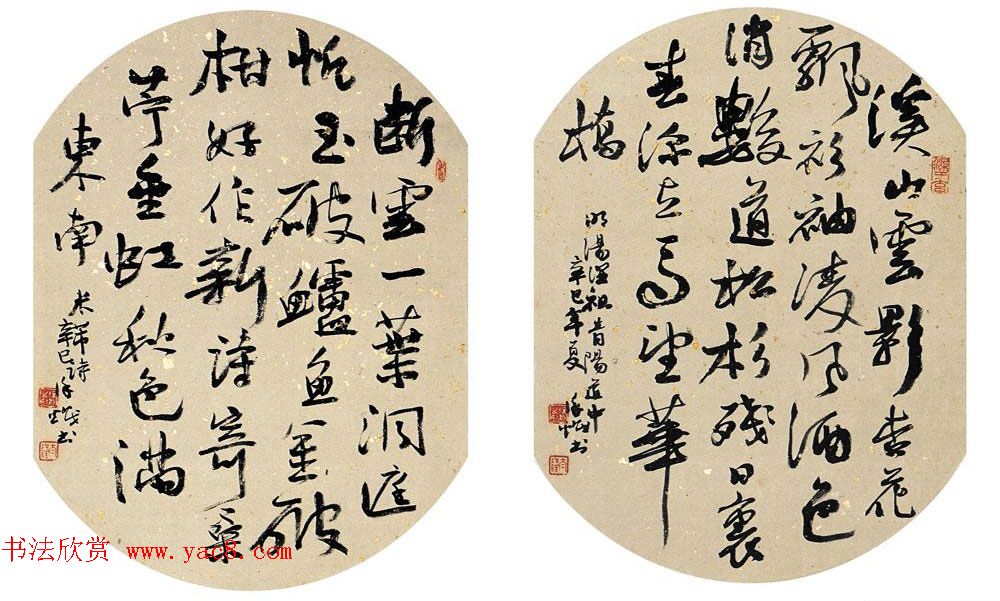 溪山雲影杏花
飄衫袖凌風酒色
消數道松杉殘日裏
春深立馬望華
橋
明湯顯祖昔陽道中
辛巳年夏 書
斷雲一葉洞庭
帆玉破鱸魚金破
柑好作新詩寄桑
苧垂虹秋色滿
東南
米芾詩
辛巳 書
书法欣赏 www.yac8.com